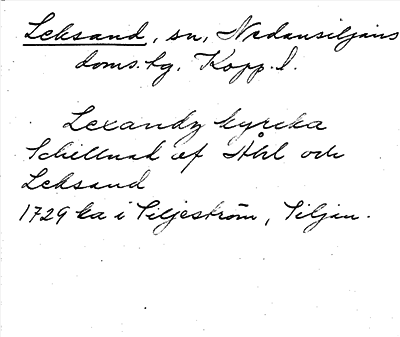 Leksand, sn, Nedansiljans
doms.tg. Kopp.l.
Lexandz kyrcka
Schillnad af Åhl och
Leksand
1729 ka i Siljeström, Siljan.